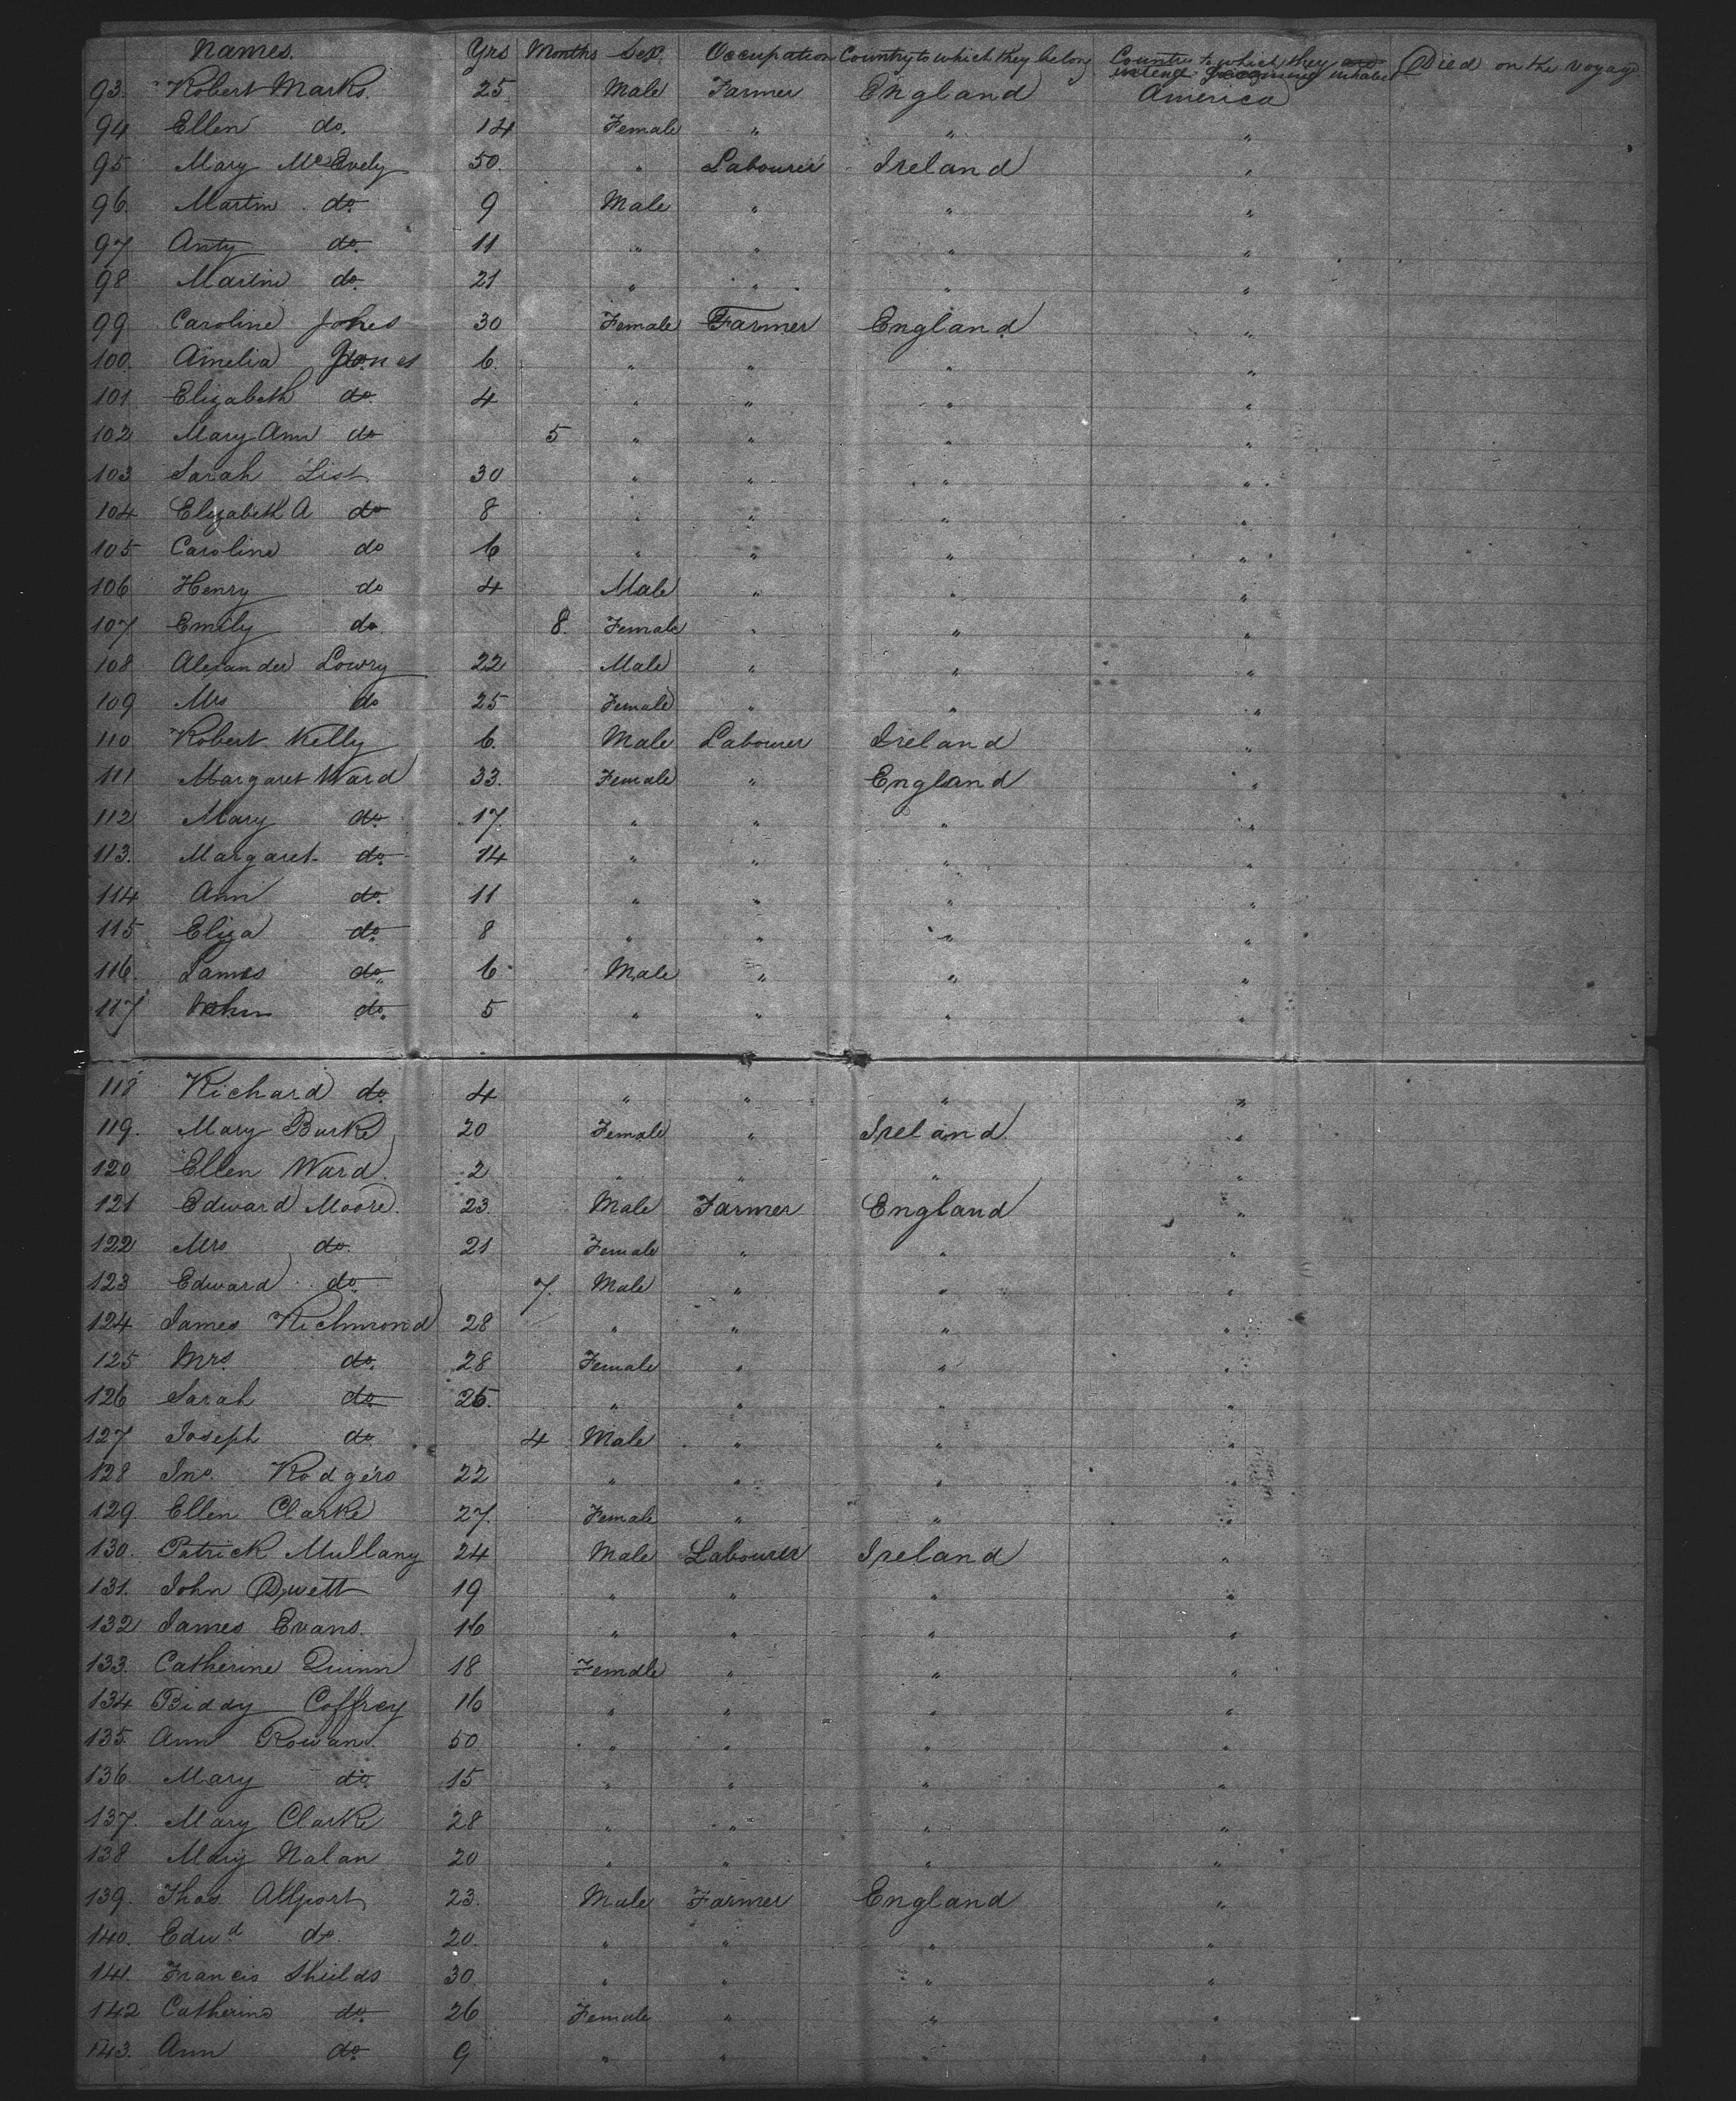 Names. Yrs Months Sex. Occupation Country to which they belong Country to which they intend inhabit Died on the voyage
93. Robert Marks. 25 Male Farmer England America
94 Ellen do. 14 Female " " "
95 Mary McEvely 50. " Labourer Ireland "
96. Martin do. 9 Male " " "
97 Anty do. 11 " " " "
98 Martin do. 21 " " " "
99 Caroline Jones 30 Female Farmer England "
100. Amelia Jones 6. " " " "
101 Elizabeth do. 4 " " " "
102 Mary Ann do 5 " " " "
103 Sarah List 30 " " " "
104 Elizabeth A do 8 " " " "
105 Caroline do 6 " " " "
106 Henry do 4 Male " " "
107 Emily do 8. Female " " "
108 Alexander Lowry 22 Male " " "
109 Mrs do 25 Female " " "
110 Robert Kelly 6. Male Labourer Ireland "
111 Margaret Ward 33. Female " England "
112 Mary do. 17. " " " "
113. Margaret do. 14 " " " "
114 Ann do. 11 " " " "
115 Eliza do. 8 " " " "
116. James do. 6 Male " " "
117 John do. 5 " " " "
118 Richard do. 4 " " " "
119. Mary Burke 20 Female " Ireland "
120 Ellen Ward. 2 " " " "
121 Edward Moore. 23. Male Farmer England "
122 Mrs do. 21 Female " " "
123 Edward do. 7. Male " " "
124 James Richmond 28 " " " "
125 Mrs. do. 28 Female " " "
126 Sarah do. 25. " " " "
127 Joseph do. 4 Male " " "
128 Jno. Rodgers 22 " " " "
129. Ellen Clarke 27. Female " " "
130. Patrick Mullany 24 Male Labourer Ireland "
131. John 19 " " " "
132 James Evans. 16 " " " "
133. Catherine Quinn 18 Female " " "
134 Biddy Coffrey 16 " " " "
135. Ann Rowan 50 " " " "
136. Mary do. 15 " " " "
137. Mary Clarke 28 " " " "
138 Mary Nalan 20 " " " "
139. Thos. Allport 23. Male Farmer England "
140. Edwd do. 20. " " " "
141. Francis Sheilds 30. " " " "
142 Catherine do. 26 Female " " "
143. Ann do. 9 " " " "